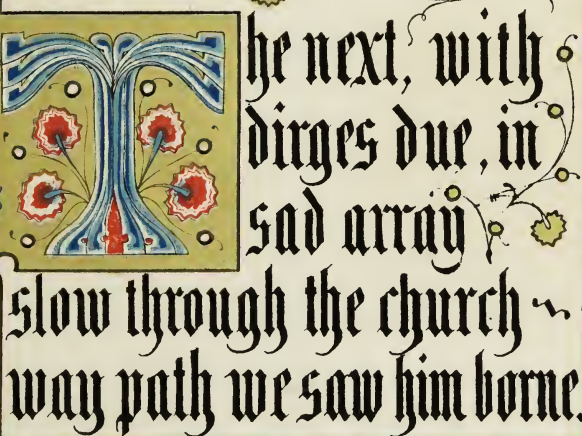 The next, with
dirges due, in
sad array
slow through the church
way path we saw him borne.